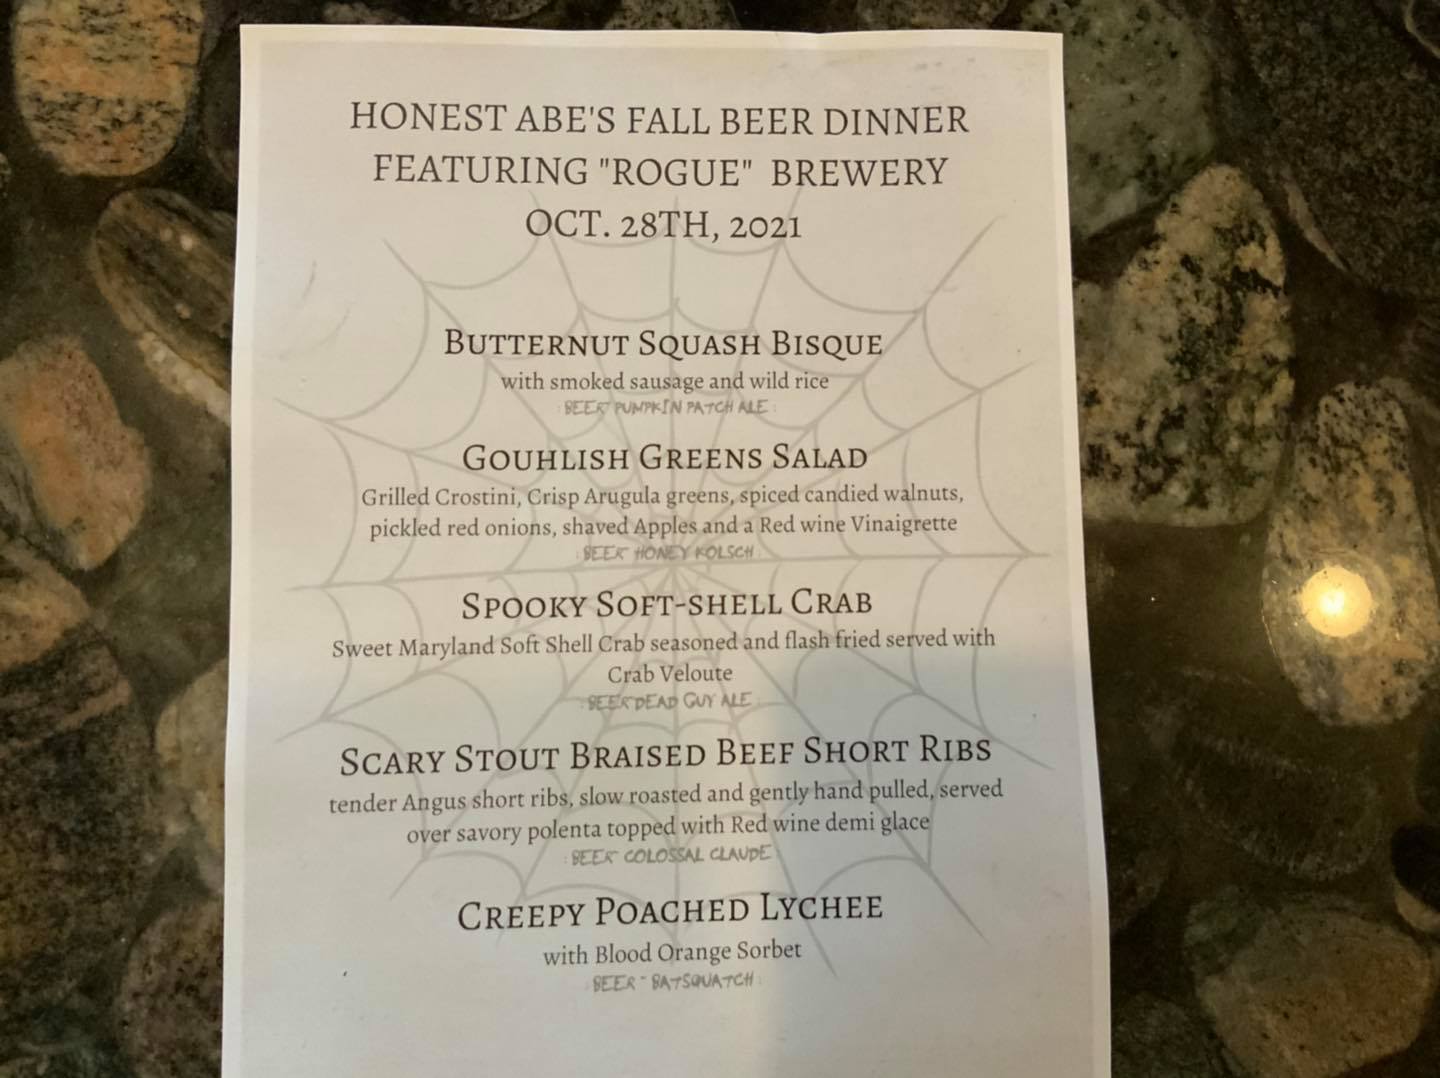 HONEST ABE'S FALL BEER DINNER
FEATURING "ROGUE" BREWERY
OCT. 28TH, 2021
BUTTERNUT SQUASH BISQUE
with smoked sausage and wild rice
BEER PUMPKIN PATCH ALE
GOUHLISH GREENS SALAD
Grilled Crostini, Crisp Arugula greens, spiced candied walnuts,
pickled red onions, shaved Apples and a Red wine Vinaigrette
BEER HONEY KOLSCH
SPOOKY SOFT-SHELL CRAB
Sweet Maryland Soft Shell Crab seasoned and flash fried served with
Crab Veloute
BEER DEAD GUY ALE
SCARY STOUT BRAISED BEEF SHORT RIBS
tender Angus short ribs, slow roasted and gently hand pulled, served
over savory polenta topped with Red wine demi glace
BEER COLOSSAL CLAUDE
CREEPY POACHED LYCHEE
with Blood Orange Sorbet
BEER - BATSQUATCH